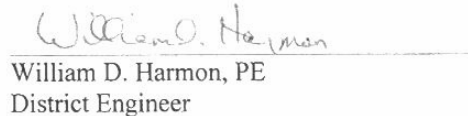 William D. Harmon
William D. Harmon, PE
District Engineer